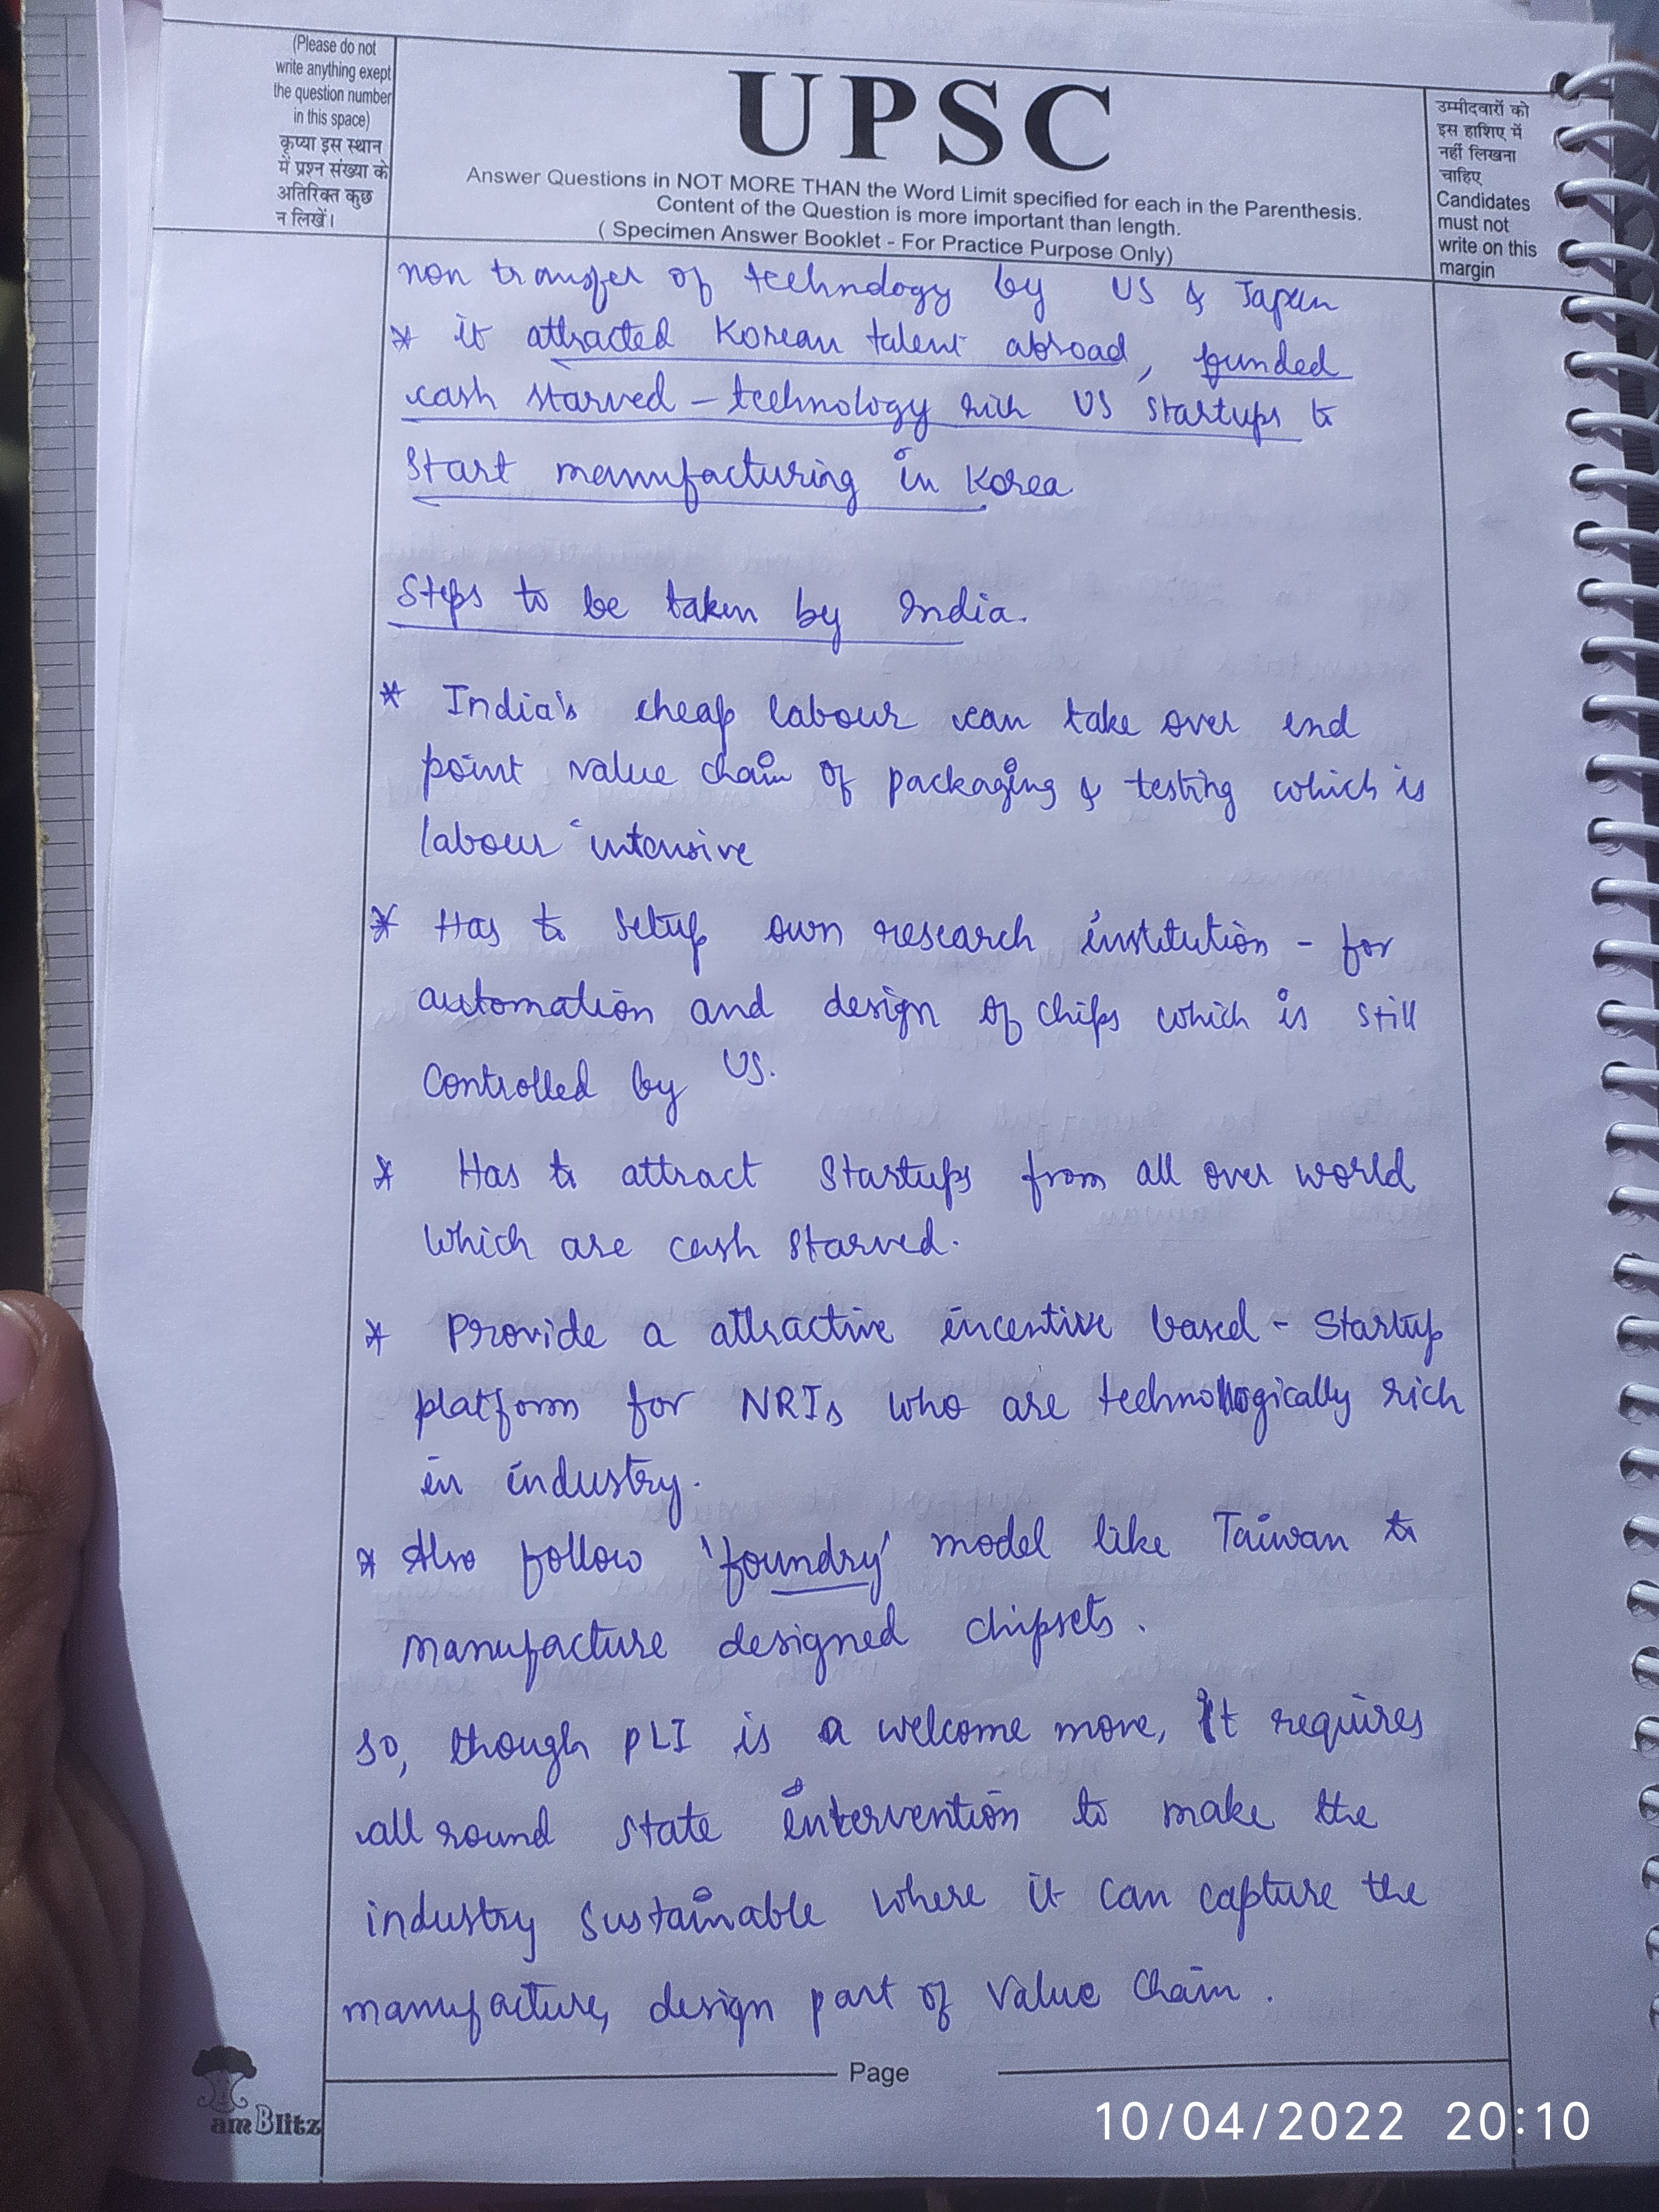 (Please do not
write anything exept
the question number
in this space)
कृप्या इस स्थान
में प्रश्न संख्या के
अतिरिक्त कुछ
न लिखें।
UPSC
Answer Questions in NOT MORE THAN the Word Limit specified for each in the Parenthesis.
Content of the Question is more important than length.
( Specimen Answer Booklet - For Practice Purpose Only)
उम्मीदवारों को
इस हाशिए में
नहीं लिखना
चाहिए
Candidates
must not
write on this
margin
non transfer of technology by US & Japan
* it attracted Korean talent abroad, funded
cash starved - technology rich US startups to
start manufacturing in Korea
Steps to be taken by India.
* India's cheap labour can take over end
point value chain of packaging & testing which is
labour intensive
* Has to setup own research institution - for
automation and design of chips which is still
controlled by US.
* Has to attract startups from all over world
which are cash starved.
* Provide a attractive incentive based - Startup
platform for NRIs who are technologically rich
in industry.
* Also follow 'foundry' model like Taiwan to
manufacture designed chipsets.
so, though PLI is a welcome move, It requires
all round state intervention to make the
industry sustainable where it can capture the
manufacture, design part of value chain.
Page
amBlitz
10/04/2022 20:10